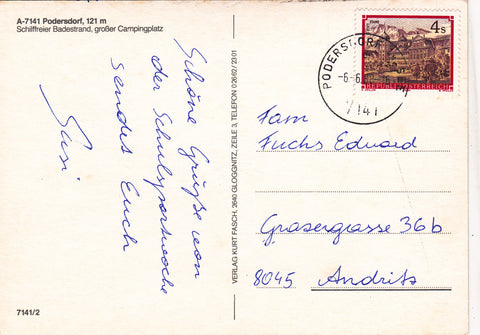 A-7141 Podersdorf, 121 m
Schilffreier Badestrand, großer Campingplatz
Schöne Grüße von
der Schulsportwoche
sendet Euch
Susi
7141/2
VERLAG KURT FASCH, 2640 GLOGGNITZ, ZEILE 3, TELEFON 0 26 62 / 23 01
4 S
REPUBLIK ÖSTERREICH
PODERSDORF
-6.-6.
7141
Fam
Fuchs Eduard
Grasergasse 36b
8045 Andritz